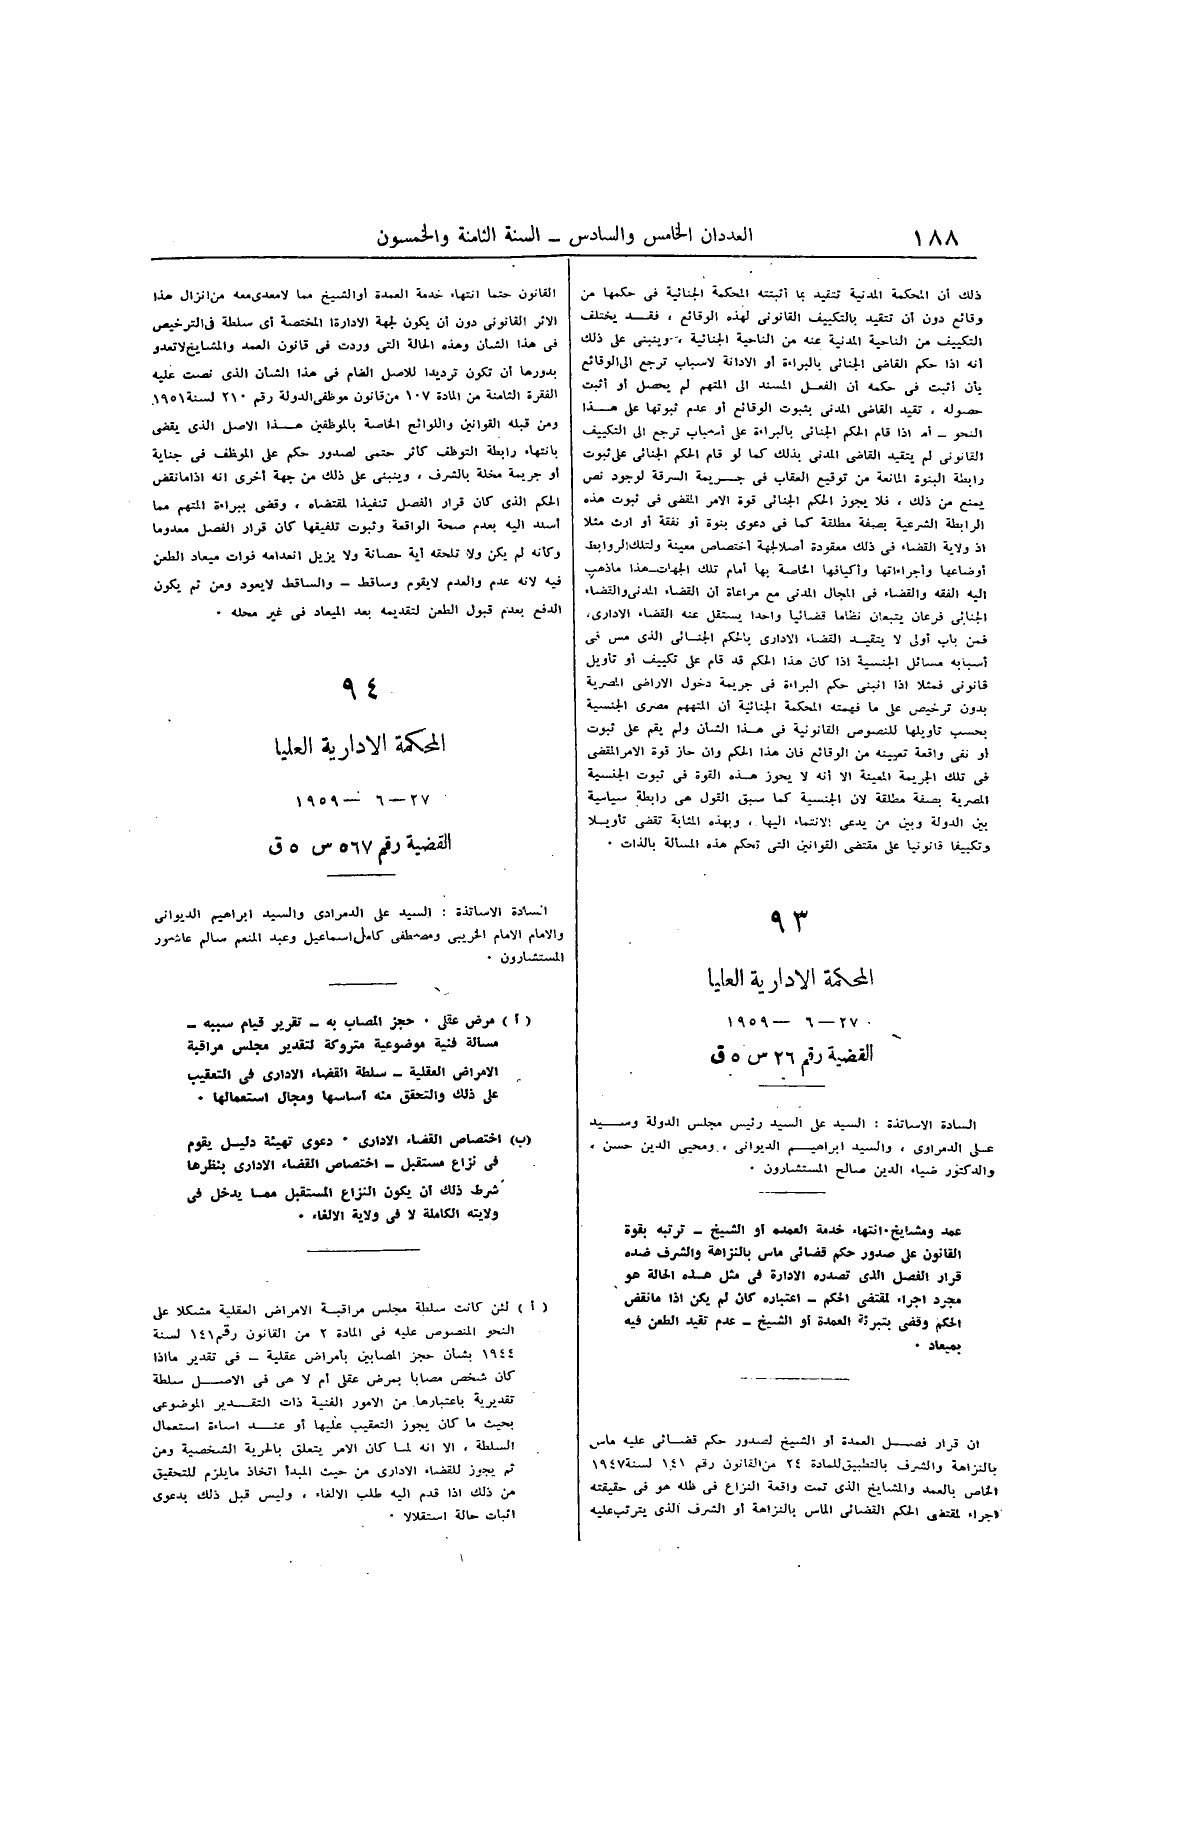 ١٨٨
العددان الخامس والسادس ــ السنة الثامنة والخمسون
ذلك أن المحكمة المدنية تتقيد بما أثبتته المحكمة الجنائية فى حكمها من
وقائع دون أن تتقيد بالتكييف القانونى لهذه الوقائع ، فقــد يختلف
التكييف من الناحية المدنية عنه من الناحية الجنائية ، وينبنى على ذلك
أنه اذا حكم القاضى الجنائى بالبراءة أو الادانة لاسباب ترجع الى الوقائع
بأن أثبت فى حكمه أن الفعـل المسند الى المتهم لم يحصل أو أثبت
حصوله ، تقيد القاضى المدنى بثبوت الوقائع أو عدم ثبوتها على هــذا
النحو ــ أما اذا قام الحكم الجنائى بالبراءة على أسباب ترجع الى التكييف
القانونى لم يتقيد القاضى المدنى بذلك كما لو قام الحكم الجنائى على ثبوت
رابطة البنوة المانعة من توقيع العقاب فى جــريمة السرقة لوجود نص
يمنع من ذلك ، فلا يجوز الحكم الجنائى قوة الامر المقضى فى ثبوت هذه
الرابطة الشرعية بصفة مطلقة كما فى دعوى بنوة أو نفقة أو ارث مثلا
اذ ولاية القضاء فى ذلك معقودة أصلا لجهة أختصاص معينة ولتلك الروابط
أوضاعها وأجراءاتها وأكيافها الخاصة بها أمام تلك الجهات ــ هذا ماذهب
اليه الفقه والقضاء فى المجال المدنى مع مراعاة أن القضاء المدنى والقضاء
الجنائى فرعان يتبعان نظاما قضائيا واحدا يستقل عنه القضاء الادارى،
فمن باب أولى لا يتقيــد القضاء الادارى بالحكم الجنــائى الذى مس فى
أسبابه مسائل الجنسية اذا كان هذا الحكم قد قام على تكييف أو تأويل
قانونى فمثلا اذا انبنى حكم البراءة فى جريمة دخول الاراضى المصرية
بدون ترخيص على ما فهمته المحكمة الجنائية أن المتهم مصرى الجنسية
بحسب تأويلها للنصوص القانونية فى هــذا الشأن ولم يقم على ثبوت
أو نفى واقعة تعيينه من الوقائع فان هذا الحكم وان حاز قوة الامر المقضى
فى تلك الجريمة المعينة الا أنه لا يحوز هــذه القوة فى ثبوت الجنسية
المصرية بصفة مطلقة لان الجنسية كما سبق القول هى رابطة سياسية
بين الدولة وبين من يدعى الانتماء اليها ، وبهذه المثابة تقضى تأويــلا
وتكييفا قانونيا على مقتضى القوانين التى تحكم هذه المسألة بالذات ٠
٩٣
المحكمة الادارية العليا
٢٧ ــ ٦ ــ ١٩٥٩
القضية رقم ٢٦ س ٥ ق
السادة الاساتذة : السيد على السيد رئيس مجلس الدولة وســيد
على الدمراوى ، والسيد ابراهيــم الديوانى ، ومحيى الدين حسن ،
والدكتور ضياء الدين صالح المستشارون ٠
عمد ومشايخ ٠ انتهاء خدمة العمده أو الشيخ ــ ترتبه بقوة
القانون على صدور حكم قضائى ماس بالنزاهة والشرف ضده
قرار الفصل الذى تصدره الادارة فى مثل هــذه الحالة هو
مجرد اجراء لمقتضى الحكم ــ اعتباره كان لم يكن اذا مانقض
الحكم وقضى بتبرئة العمدة أو الشيخ ــ عدم تقيد الطعن فيه
بميعاد ٠
ان قرار فصــل العمدة أو الشيخ لصدور حكم قضــائى عليه ماس
بالنزاهة والشرف بالتطبيق للمادة ٢٤ من القانون رقم ١٤١ لسنة ١٩٤٧
الخاص بالعمد والمشايخ الذى تمت واقعة النزاع فى ظله هو فى حقيقته
اجراء لمقتضى الحكم القضائى الماس بالنزاهة أو الشرف الذى يترتب عليه
القانون حتما انتهاء خدمة العمدة أو الشيخ مما لامعدى معه من انزال هذا
الاثر القانونى دون أن يكون لجهة الادارة المختصة أى سلطة فى الترخيص
فى هذا الشان وهذه الحالة التى وردت فى قانون العمد والمشايخ لاتعدو
بدورها أن تكون ترديدا للاصل العام فى هذا الشأن الذى نصت عليه
الفقرة الثامنة من المادة ١٠٧ من قانون موظفى الدولة رقم ٢١٠ لسنة ١٩٥١
ومن قبله القوانين واللوائح الخاصة بالموظفين هــذا الاصل الذى يقضى
بانتهاء رابطة التوظف كاثر حتمى لصدور حكم على الموظف فى جناية
أو جريمة مخلة بالشرف ، وينبنى على ذلك من جهة أخرى انه اذا مانقض
الحكم الذى كان قرار الفصل تنفيذا لمقتضاه ، وقضى ببراءة المتهم مما
أسند اليه بعدم صحة الواقعة وثبوت تلفيقها كان قرار الفصل معدوما
وكأنه لم يكن ولا تلحقه أية حصانة ولا يزيل انعدامه فوات ميعاد الطعن
فيه لانه عدم والعدم لايقوم وساقط ــ والساقط لايعود ومن ثم يكون
الدفع بعدم قبول الطعن لتقديمه بعد الميعاد فى غير محله ٠
٩٤
المحكمة الادارية العليا
٢٧ ــ ٦ ــ ١٩٥٩
القضية رقم ٥٦٧ س ٥ ق
السادة الاساتذة : السيد على الدمرادى والسيد ابراهيم الديوانى
والامام الامام الخريبى ومصطفى كامل اسماعيل وعبد المنعم سالم عاشور
المستشارون ٠
( أ ) مرض عقلى ٠ حجز المصاب به ــ تقرير قيام سببه ــ
مسالة فنية موضوعية متروكة لتقدير مجلس مراقبة
الامراض العقلية ــ سلطة القضاء الادارى فى التعقيب
على ذلك والتحقق منه أساسها ومجال استعمالها ٠
(ب) اختصاص القضاء الادارى ٠ دعوى تهيئة دليــل يقوم
فى نزاع مستقبل ــ اختصاص القضاء الادارى بنظرها
شرط ذلك أن يكون النزاع المستقبل ممــا يدخل فى
ولايته الكاملة لا فى ولاية الالغاء ٠
( أ ) لئن كانت سلطة مجلس مراقبــة الامراض العقلية مشكلا على
النحو المنصوص عليه فى المادة ٢ من القانون رقم ١٤١ لسنة
١٩٤٤ بشأن حجز المصابين بأمراض عقلية ــ فى تقدير مااذا
كان شخص مصابا بمرض عقلى أم لا هى فى الاصــل سلطة
تقديرية باعتبارها من الامور الفنية ذات التقــدير الموضوعى
بحيث ما كان يجوز التعقيب عليها أو عنــد اساءة استعمال
السلطة ، الا انه لمــا كان الامر يتعلق بالحرية الشخصية ومن
ثم يجوز للقضاء الادارى من حيث المبدأ اتخاذ مايلزم للتحقيق
من ذلك اذا قدم اليه طلب الالغاء ، وليس قبل ذلك بدعوى
اثبات حالة استقلالا ٠